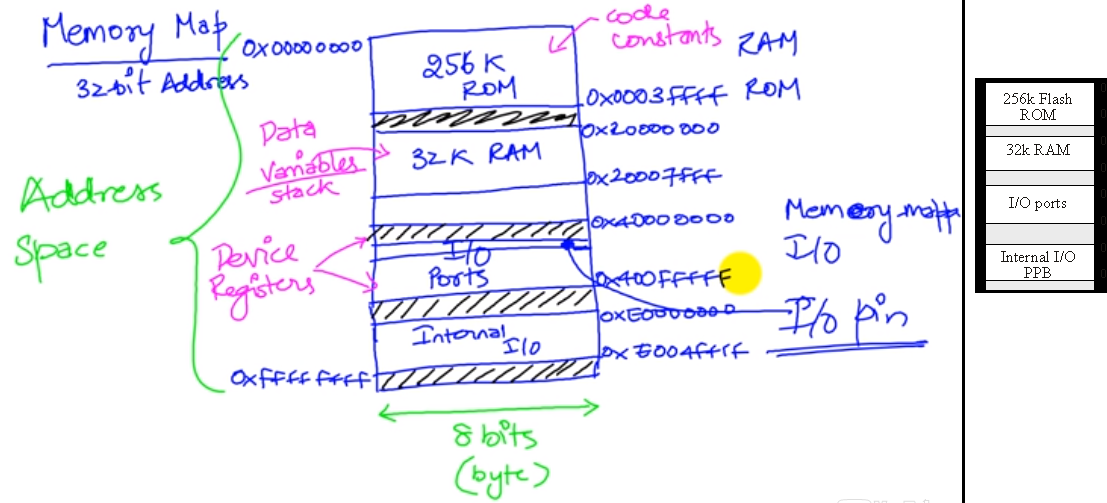 Memory Map
32-bit Address
0x00000000
code
constants
RAM
ROM
256K
ROM
0x0003ffff
0x20000000
Data
Variables
stack
32K RAM
0x20007fff
Address
Space
0x40000000
Memory-mapp
I/O
Device
Registers
I/O
Ports
0x400FFFFF
0xE0000000
I/o pin
Internal
I/O
0xE004ffff
0xffffffff
8 bits
(byte)
256k Flash
ROM
32k RAM
I/O ports
Internal I/O
PPB